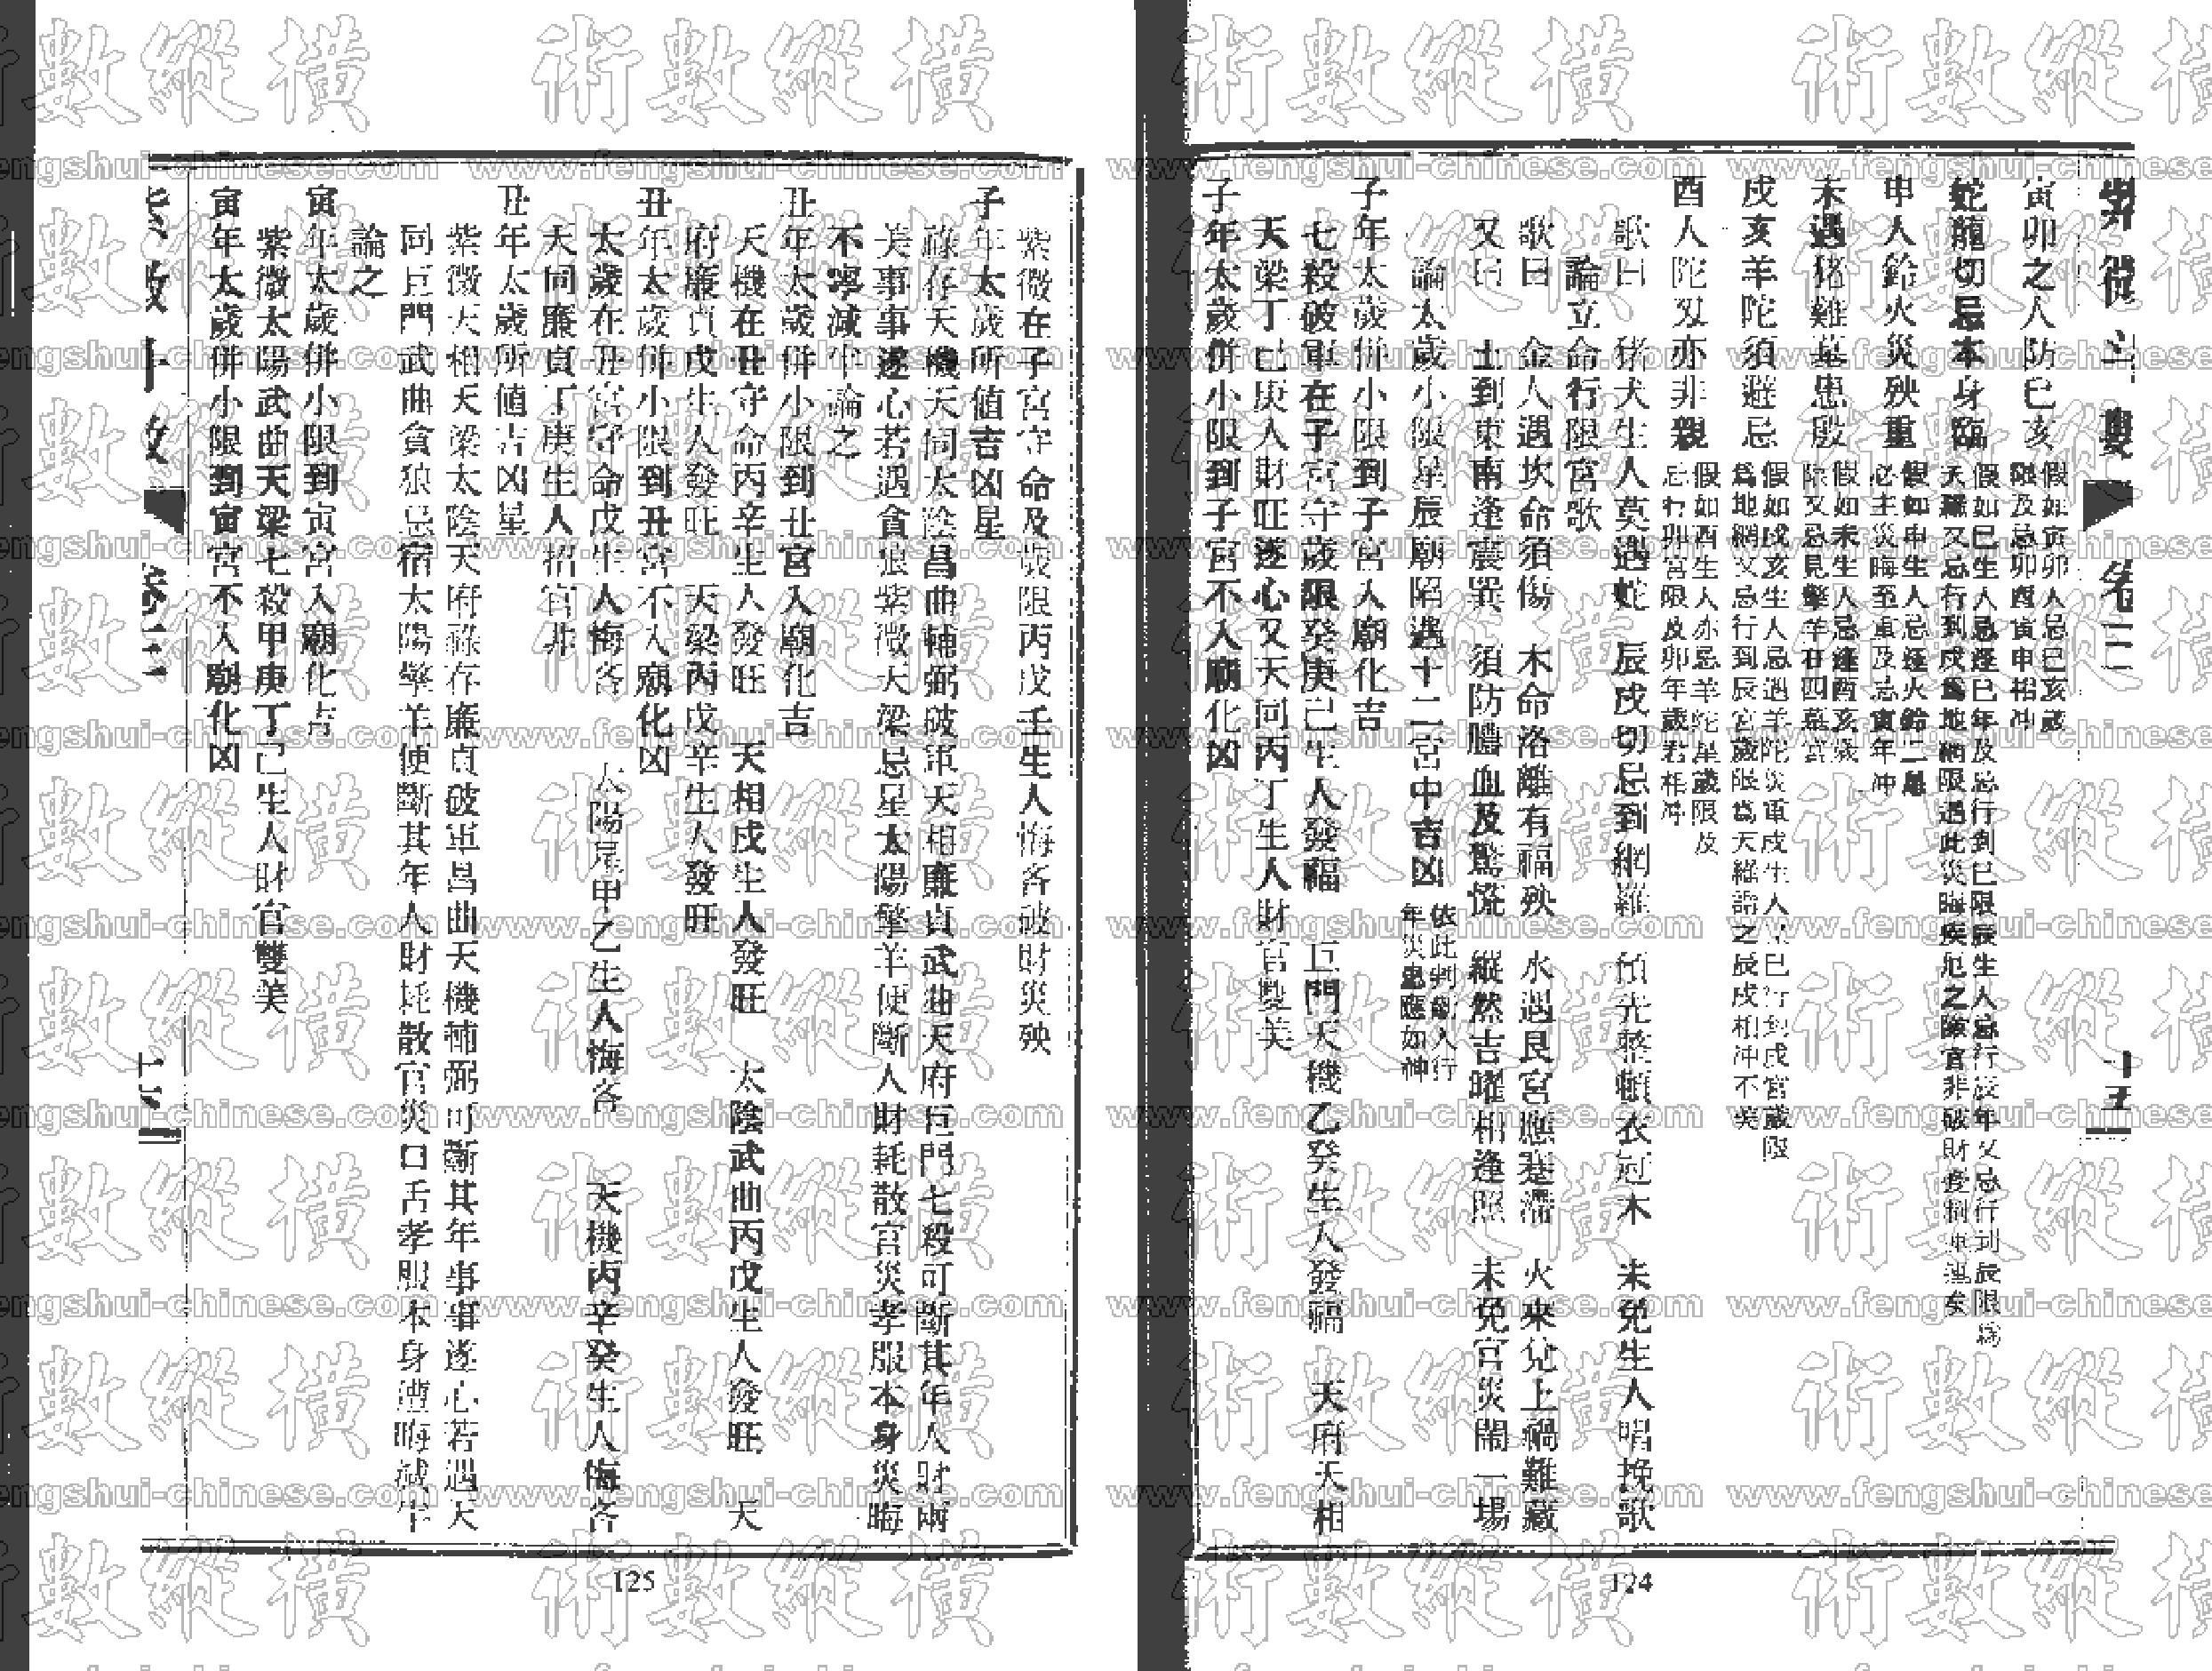 紫微斗數 卷三 十五
寅卯之人防巳亥 假如寅卯人忌巳亥歲
限及忌卯酉寅申相冲
蛇龍切忌本身臨 假如巳生人忌逢巳年及忌行到巳限辰生人忌行辰年又忌行到辰限爲
天羅又忌行到戌爲地網限遇此災晦疾厄之陳官非破財
申人鈴火災殃重 假如申生人忌逢火鈴二星
必主災晦至重及忌寅年冲
未遇猪雞墓患殷 假如未生人忌逢酉亥歲
限又忌見擎羊在四墓宮
戌亥羊陀須避忌 假如戌亥生人忌遇羊陀災重戌生人忌行到戌宮歲限
爲地網又忌行到辰宮歲限爲天羅謂之辰戌相冲不美
酉人陀刄亦非親 假如酉生人亦忌羊陀星歲限及
忌行卯宮限及卯年歲君相冲
歌曰 猪犬生人莫遇蛇 辰戌切忌到網羅 預先整頓衣冠木 未免生人唱挽歌
論立命行限宮歌
歌曰 金人遇坎命須傷 木命洛離有福殃 水遇艮宮應蹇滯 火來兌上禍難藏
又曰 土到東南逢震巽 須防膿血及驚慌 縱然吉曜相逢照 未免官災鬧一場
論太歲小限星辰廟陷遇十二宮中吉凶 依此判斷人行
年災患應如神
子年太歲併小限到子宮入廟化吉
七殺破軍在子宮守歲限癸庚己生人發福 巨門天機乙癸生人發福 天府天相
天梁丁己庚人財旺遂心又天同丙丁生人財官雙美
子年太歲併小限到子宮不入廟化凶
124
紫微在子宮守命及歲限丙戊壬生人悔吝破財災殃
子年太歲所值吉凶星
祿存天機天同太陰昌曲輔弼破軍天相廉貞武曲天府巨門七殺可斷其年人財兩
美事事遂心若遇貪狼紫微天梁忌星太陽擎羊便斷人財耗散官災孝服本身災晦
不寧減半論之
丑年太歲併小限到丑宮入廟化吉
天機在丑守命丙辛生人發旺 天相戊生人發旺 太陰武曲丙戊生人發旺 天
府廉貞戊生人發旺 天梁丙戊辛生人發旺
丑年太歲併小限到丑宮不入廟化凶
太歲在丑宮守命戊生人悔吝 太陽星甲乙生人悔吝 天機丙辛癸生人悔吝
天同廉貞丁庚生人招官非
丑年太歲所值吉凶星
紫微天相天梁太陰天府祿存廉貞破軍昌曲天機輔弼可斷其年事事遂心若遇天
同巨門武曲貪狼忌宿太陽擎羊便斷其年人財耗散官災口舌孝服本身遭晦減半
論之
寅年太歲併小限到寅宮入廟化吉
紫微太陽武曲天梁七殺甲庚丁己生人財官雙美
寅年太歲併小限到寅宮不入廟化凶
紫微斗數 卷三
125